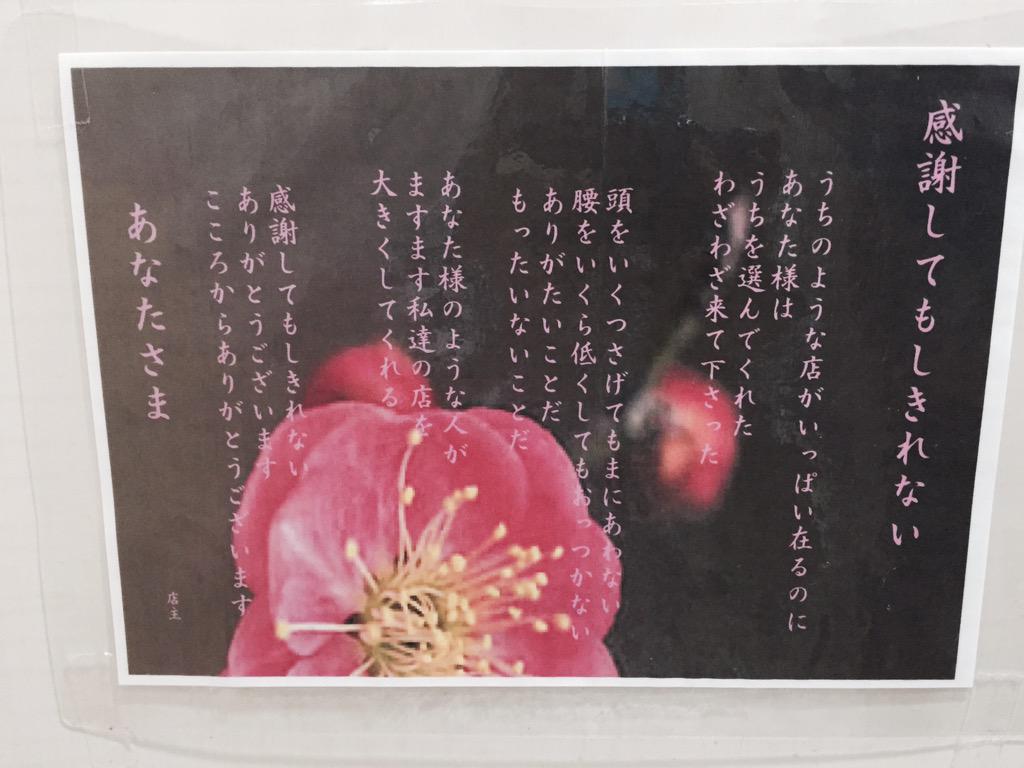 感謝してもしきれない
うちのような店がいっぱい在るのに
あなた様は
うちを選んでくれた
わざわざ来て下さった
頭をいくつさげてもまにあわない
腰をいくら低くしてもおっつかない
ありがたいことだ
もったいないことだ
あなた様のような人が
ますます私達の店を
大きくしてくれる
感謝してもしきれない
ありがとうございます
こころからありがとうございます
あなたさま
店主